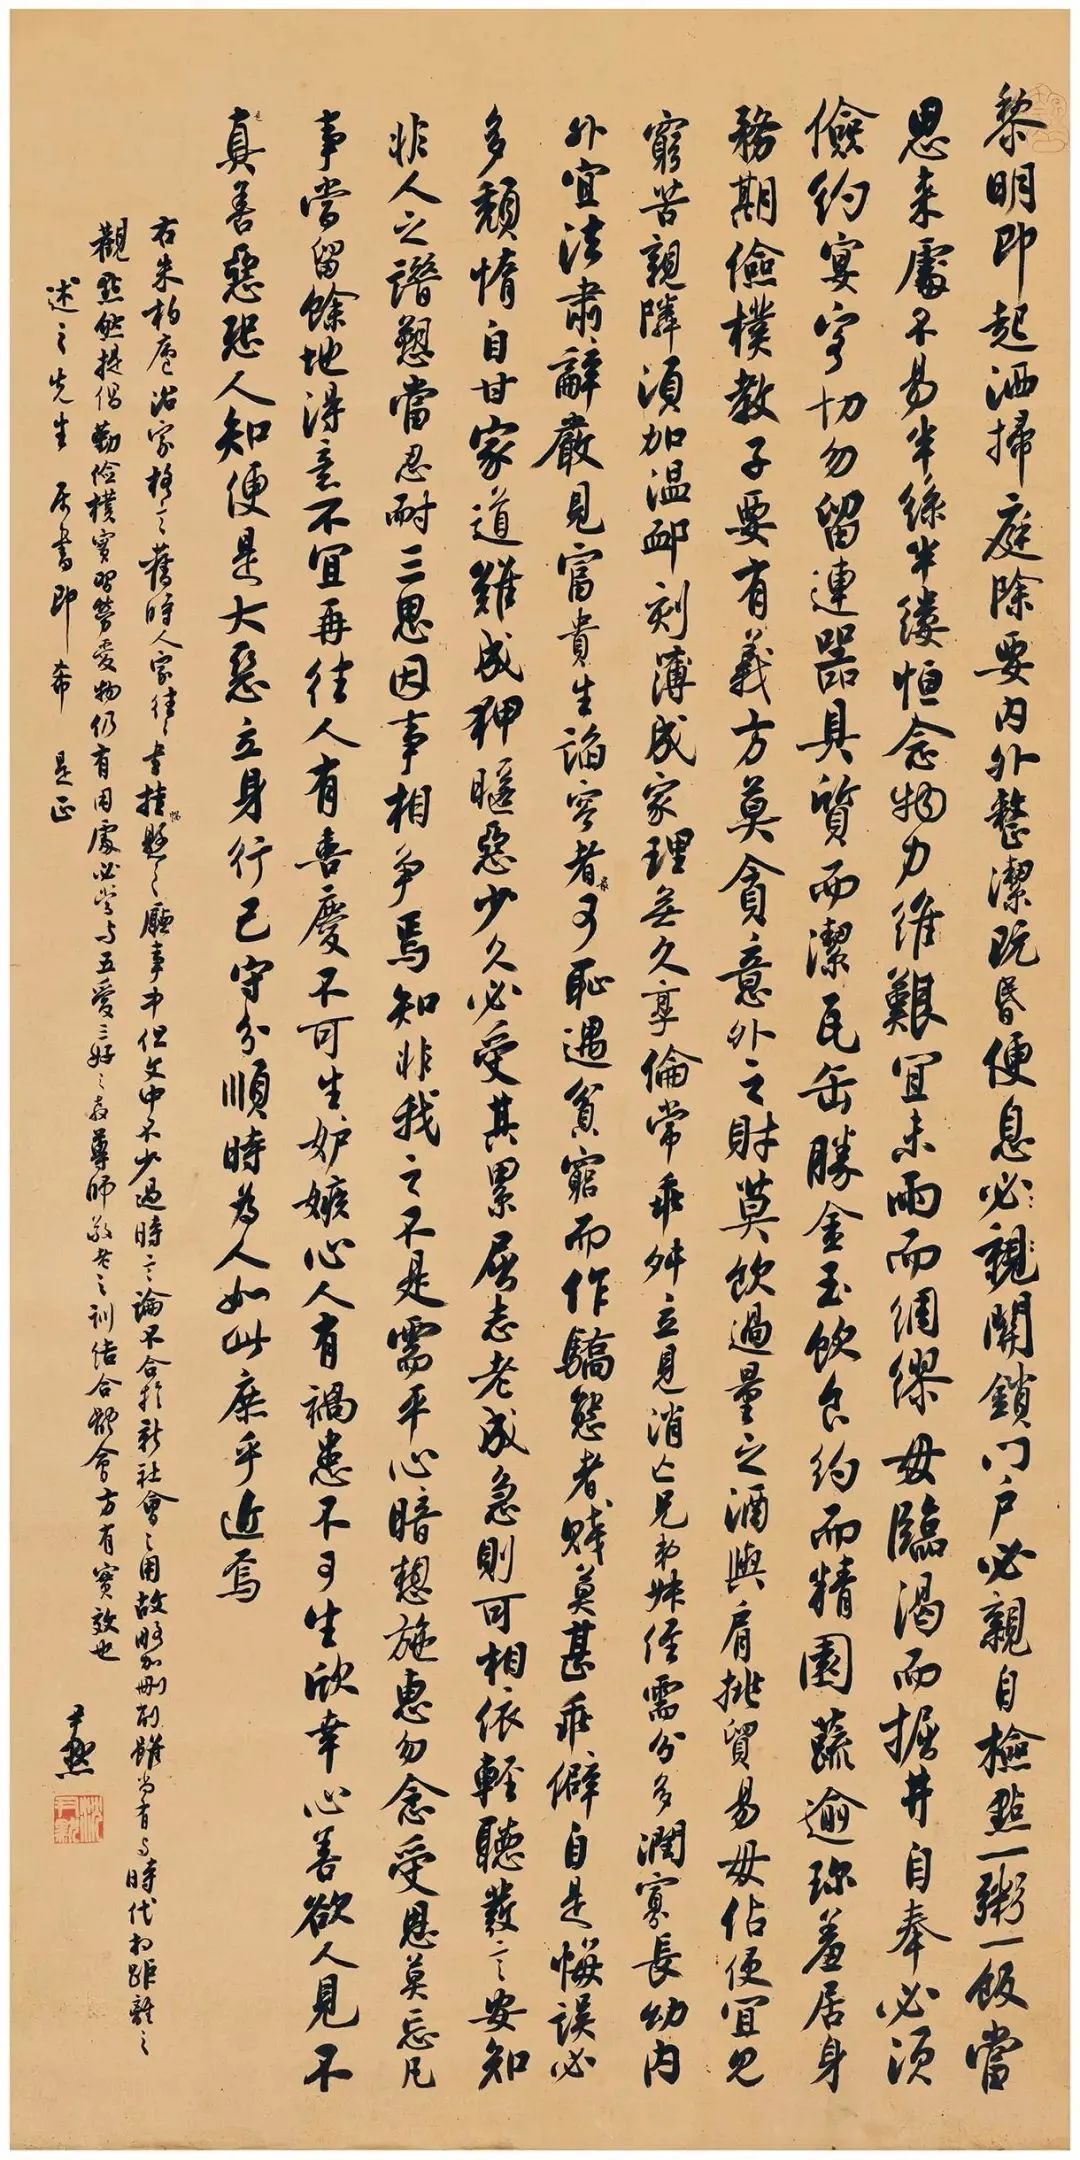 黎明即起洒掃庭除要内外整潔既昏便息必親關鎖门户必親自檢點一粥一飯當
思来處不易半絲半縷恒念物力維艱宜未雨而绸缪毋臨渴而掘井自奉必須
儉約宴客切勿留連器具質而潔瓦缶勝金玉飲食約而精園蔬逾珍羞居身
務期儉樸教子要有義方莫貪意外之財莫飲過量之酒與肩挑貿易毋佔便宜見
窮苦親隣須加温邺刻薄成家理無久享倫常乖舛立見消亡兄弟姊侄需分多潤寡長幼内
外宜法肅辭嚴見富貴生諂容者最可恥遇貧窮而作驕態者賤莫甚乖僻自是悔誤必
多頹惰自甘家道難成狎暱惡少久必受其累屈志老成急則可相依輕聽發言安知
非人之譖愬當忍耐三思因事相争焉知非我之不是需平心暗想施惠勿念受恩莫忘凡
事當留餘地得意不宜再往人有喜慶不可生妒嫉心人有禍患不可生欣幸心善欲人見不
是真善惡恐人知便是大惡立身行己守分順時為人如此庶乎近焉
右朱柏廬治家格言舊時人家往往書挂懸之廳事中但文中不少過時言論不合於新社會之用故略加刪削雖尚有与時代相距離之
觀點然提倡勤儉樸實習勞愛物仍有用處必당与五愛三好之教尊師敬老之訓结合體會方有實效也
述之先生 屬書即希 是正
尹默
沈尹默